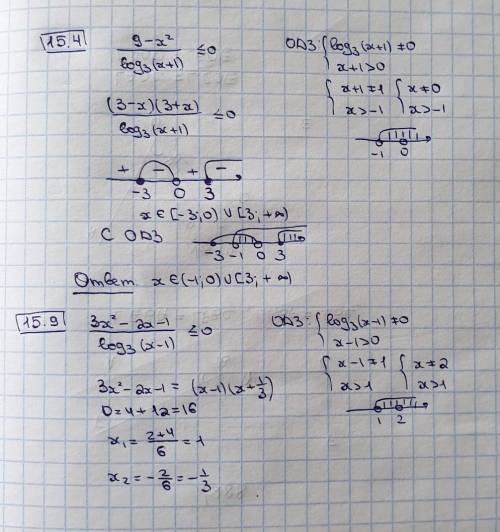 15.4 (9-x²)/(log₃(x+1)) ≤0 ОДЗ: { log₃(x+1) ≠0
x+1>0
(3-x)(3+x)/(log₃(x+1)) ≤0 { x+1≠1 { x≠0
x>-1 x>-1
-1 0
+ - + -
-3 0 3
x∈[-3;0)∪[3;+∞)
С ОДЗ -3 -1 0 3
Ответ. x∈(-1;0)∪[3;+∞)
15.9 (3x²-2x-1)/(log₃(x-1)) ≤0 ОДЗ: { log₃(x-1)≠0
x-1>0
{ x-1≠1 { x≠2
x>1 x>1
3x²-2x-1= (x-1)(x+1/3)
D=4+12=16 1 2
x₁= (2+4)/6 =1
x₂= -2/6 = -1/3